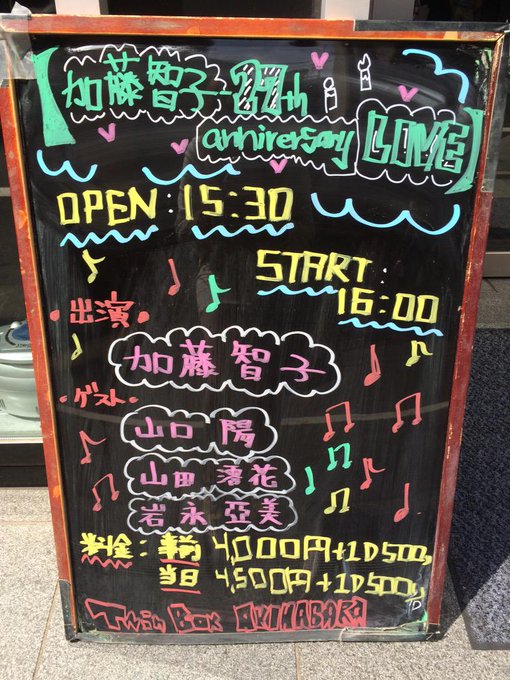 【加藤智子 27th
anniversary LIVE】
OPEN:15:30
START:
16:00
・出演・
加藤智子
・ゲスト・
山口 陽
山田 落花
岩永 亞美
料金:事前 4,000円+1D500
当日 4,500円+1D500
Twin Box AKIHABARA